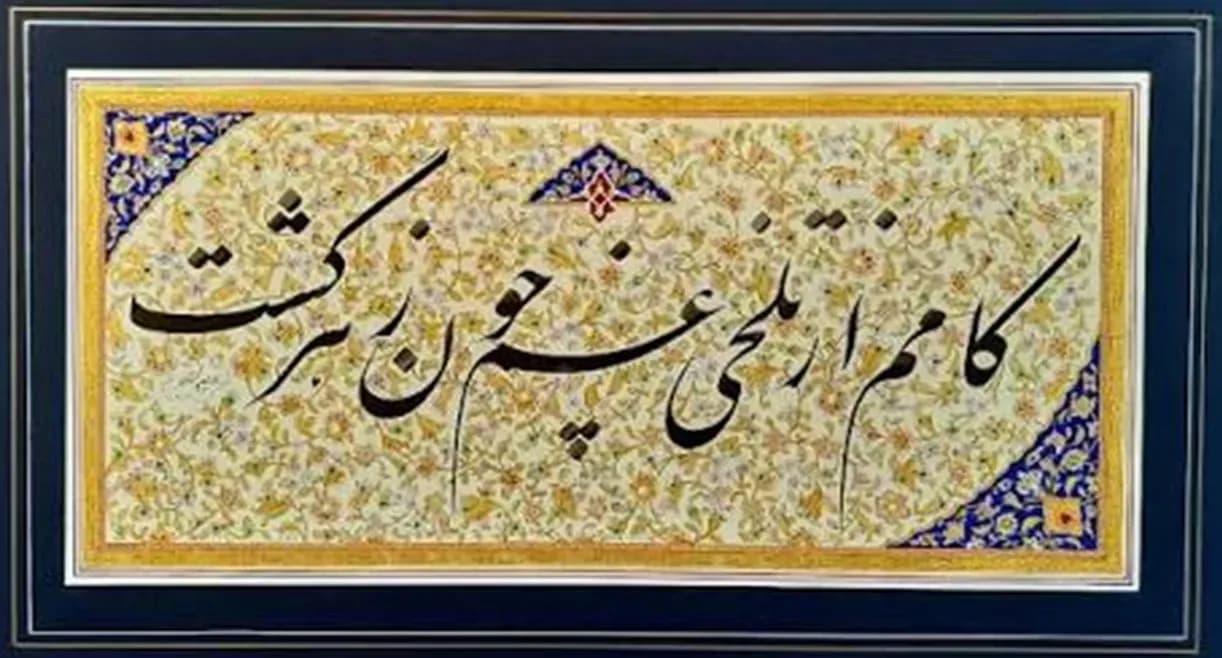 کامم از تلخی غم چون زهر گشت